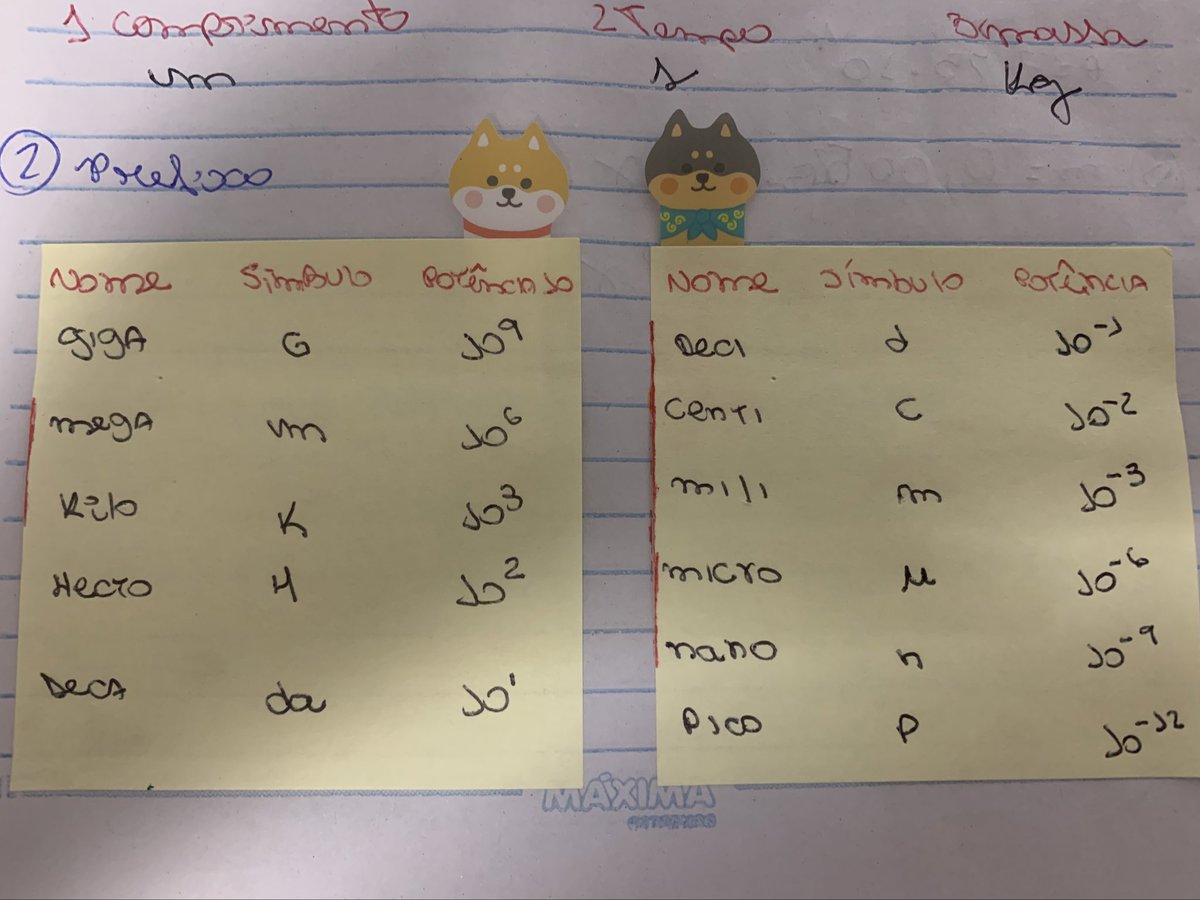 1 Comprimento 2 Tempo 3 massa
m s Kg
2 Prefixo
Nome Símbulo Potência 10
giga G 10⁹
mega m 10⁶
Kilo K 10³
Hecto H 10²
Deca da 10¹
Nome Símbulo Potência
Deci d 10⁻¹
Centi c 10⁻²
mili m 10⁻³
micro μ 10⁻⁶
nano n 10⁻⁹
Pico P 10⁻¹²
MÁXIMA